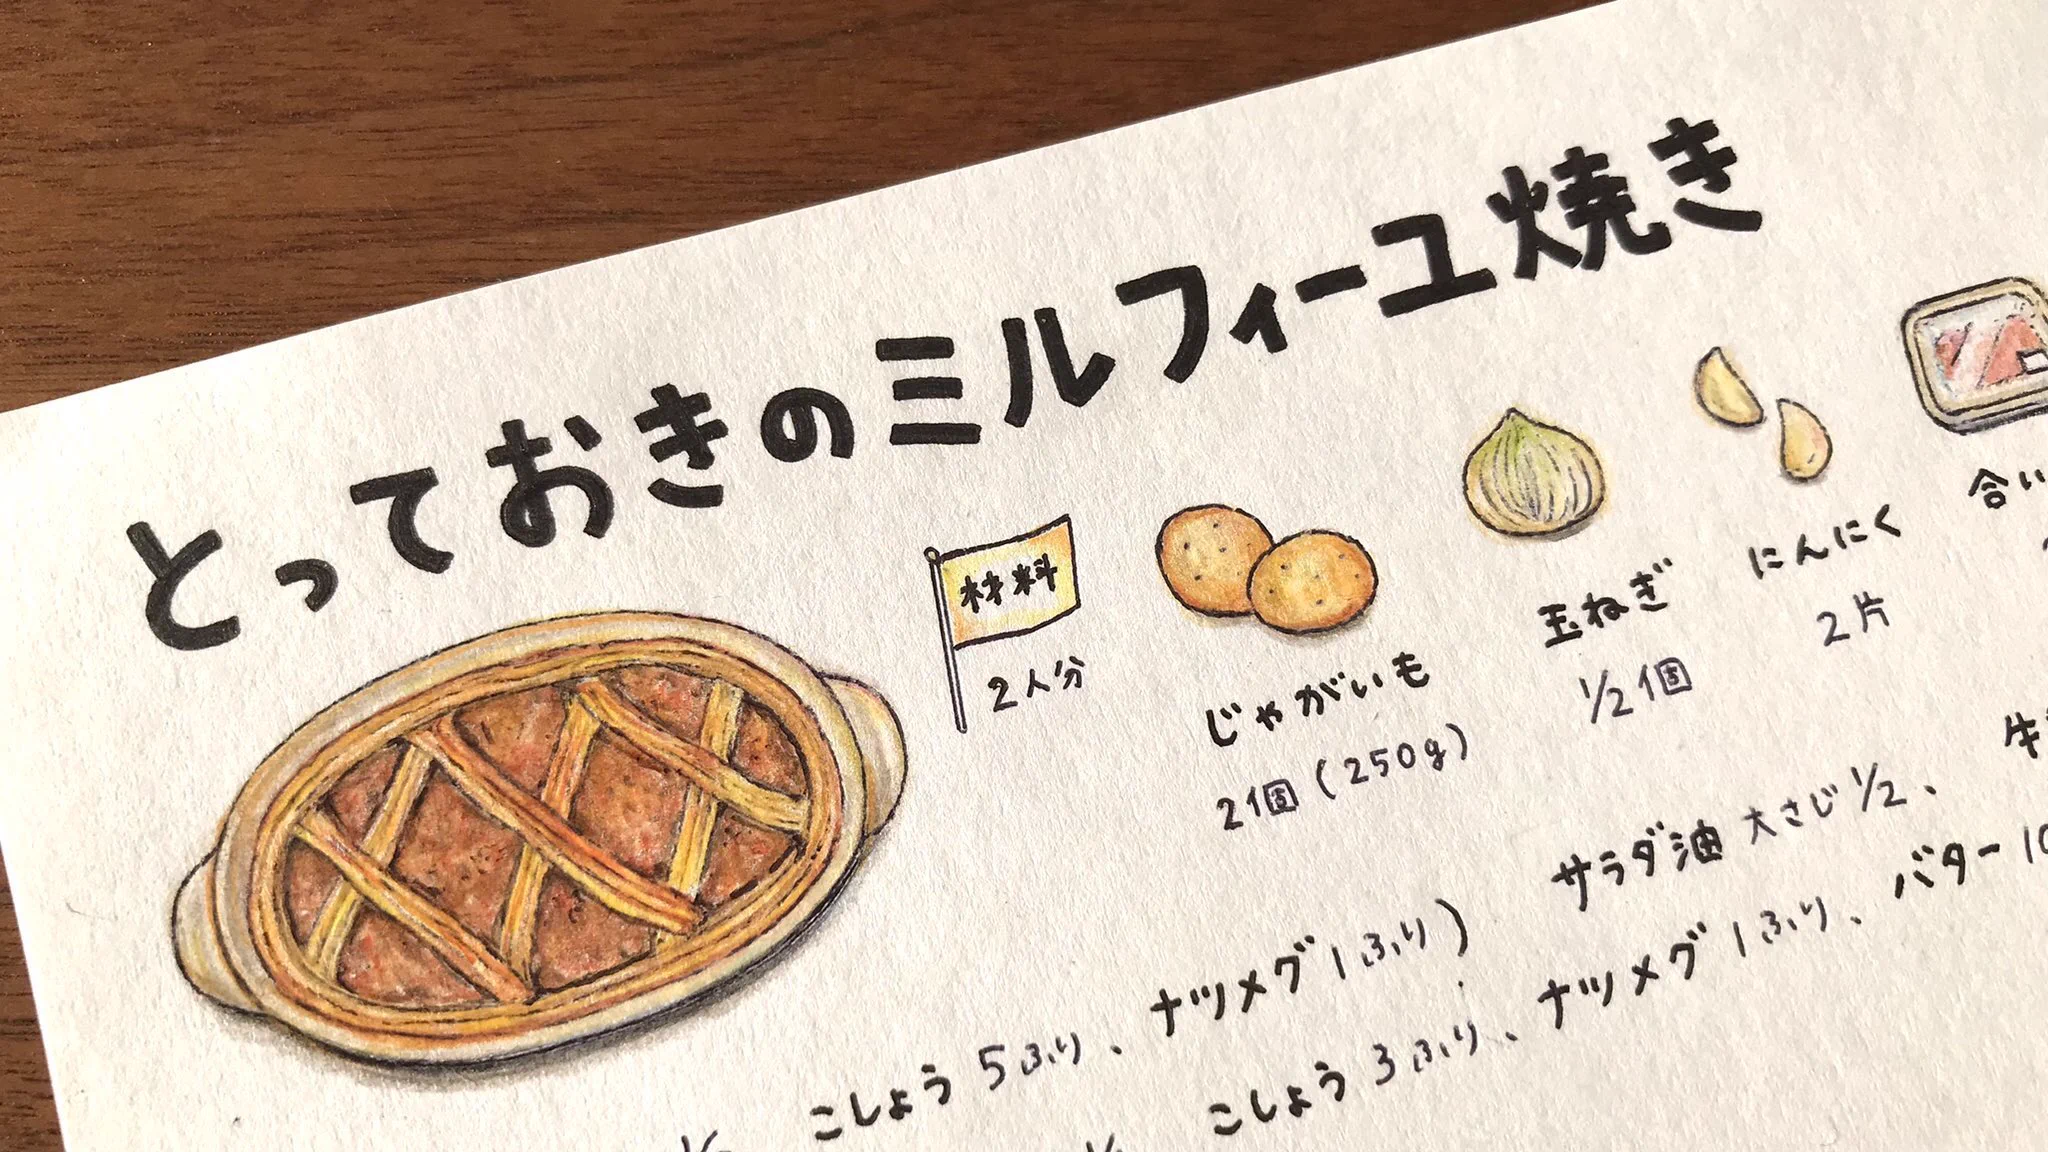 とっておきのミルフィーユ焼き
材料
2人分
じゃがいも
2個(250g)
玉ねぎ
1/2個
にんにく
2片
合い
牛
サラダ油 大さじ1/2、
ナツメグ1ふり) バター10
こしょう5ふり、
こしょう3ふり、ナツメグ1ふり、